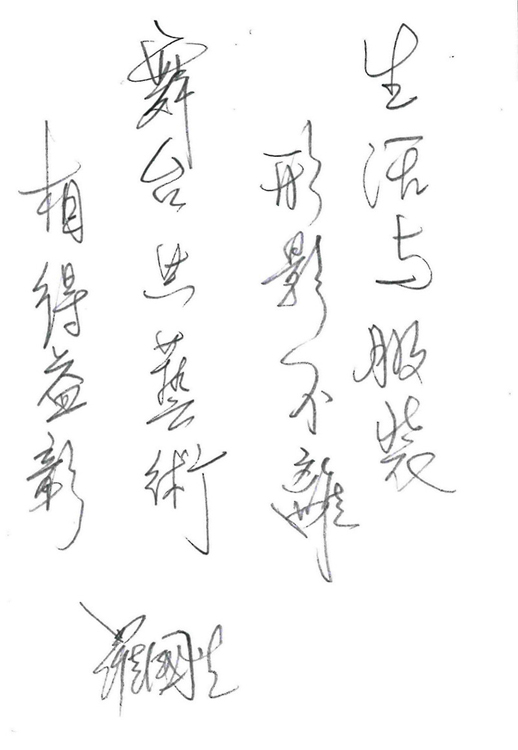 生活与服装
形影不離
舞台共藝術
相得益彰
羅國生